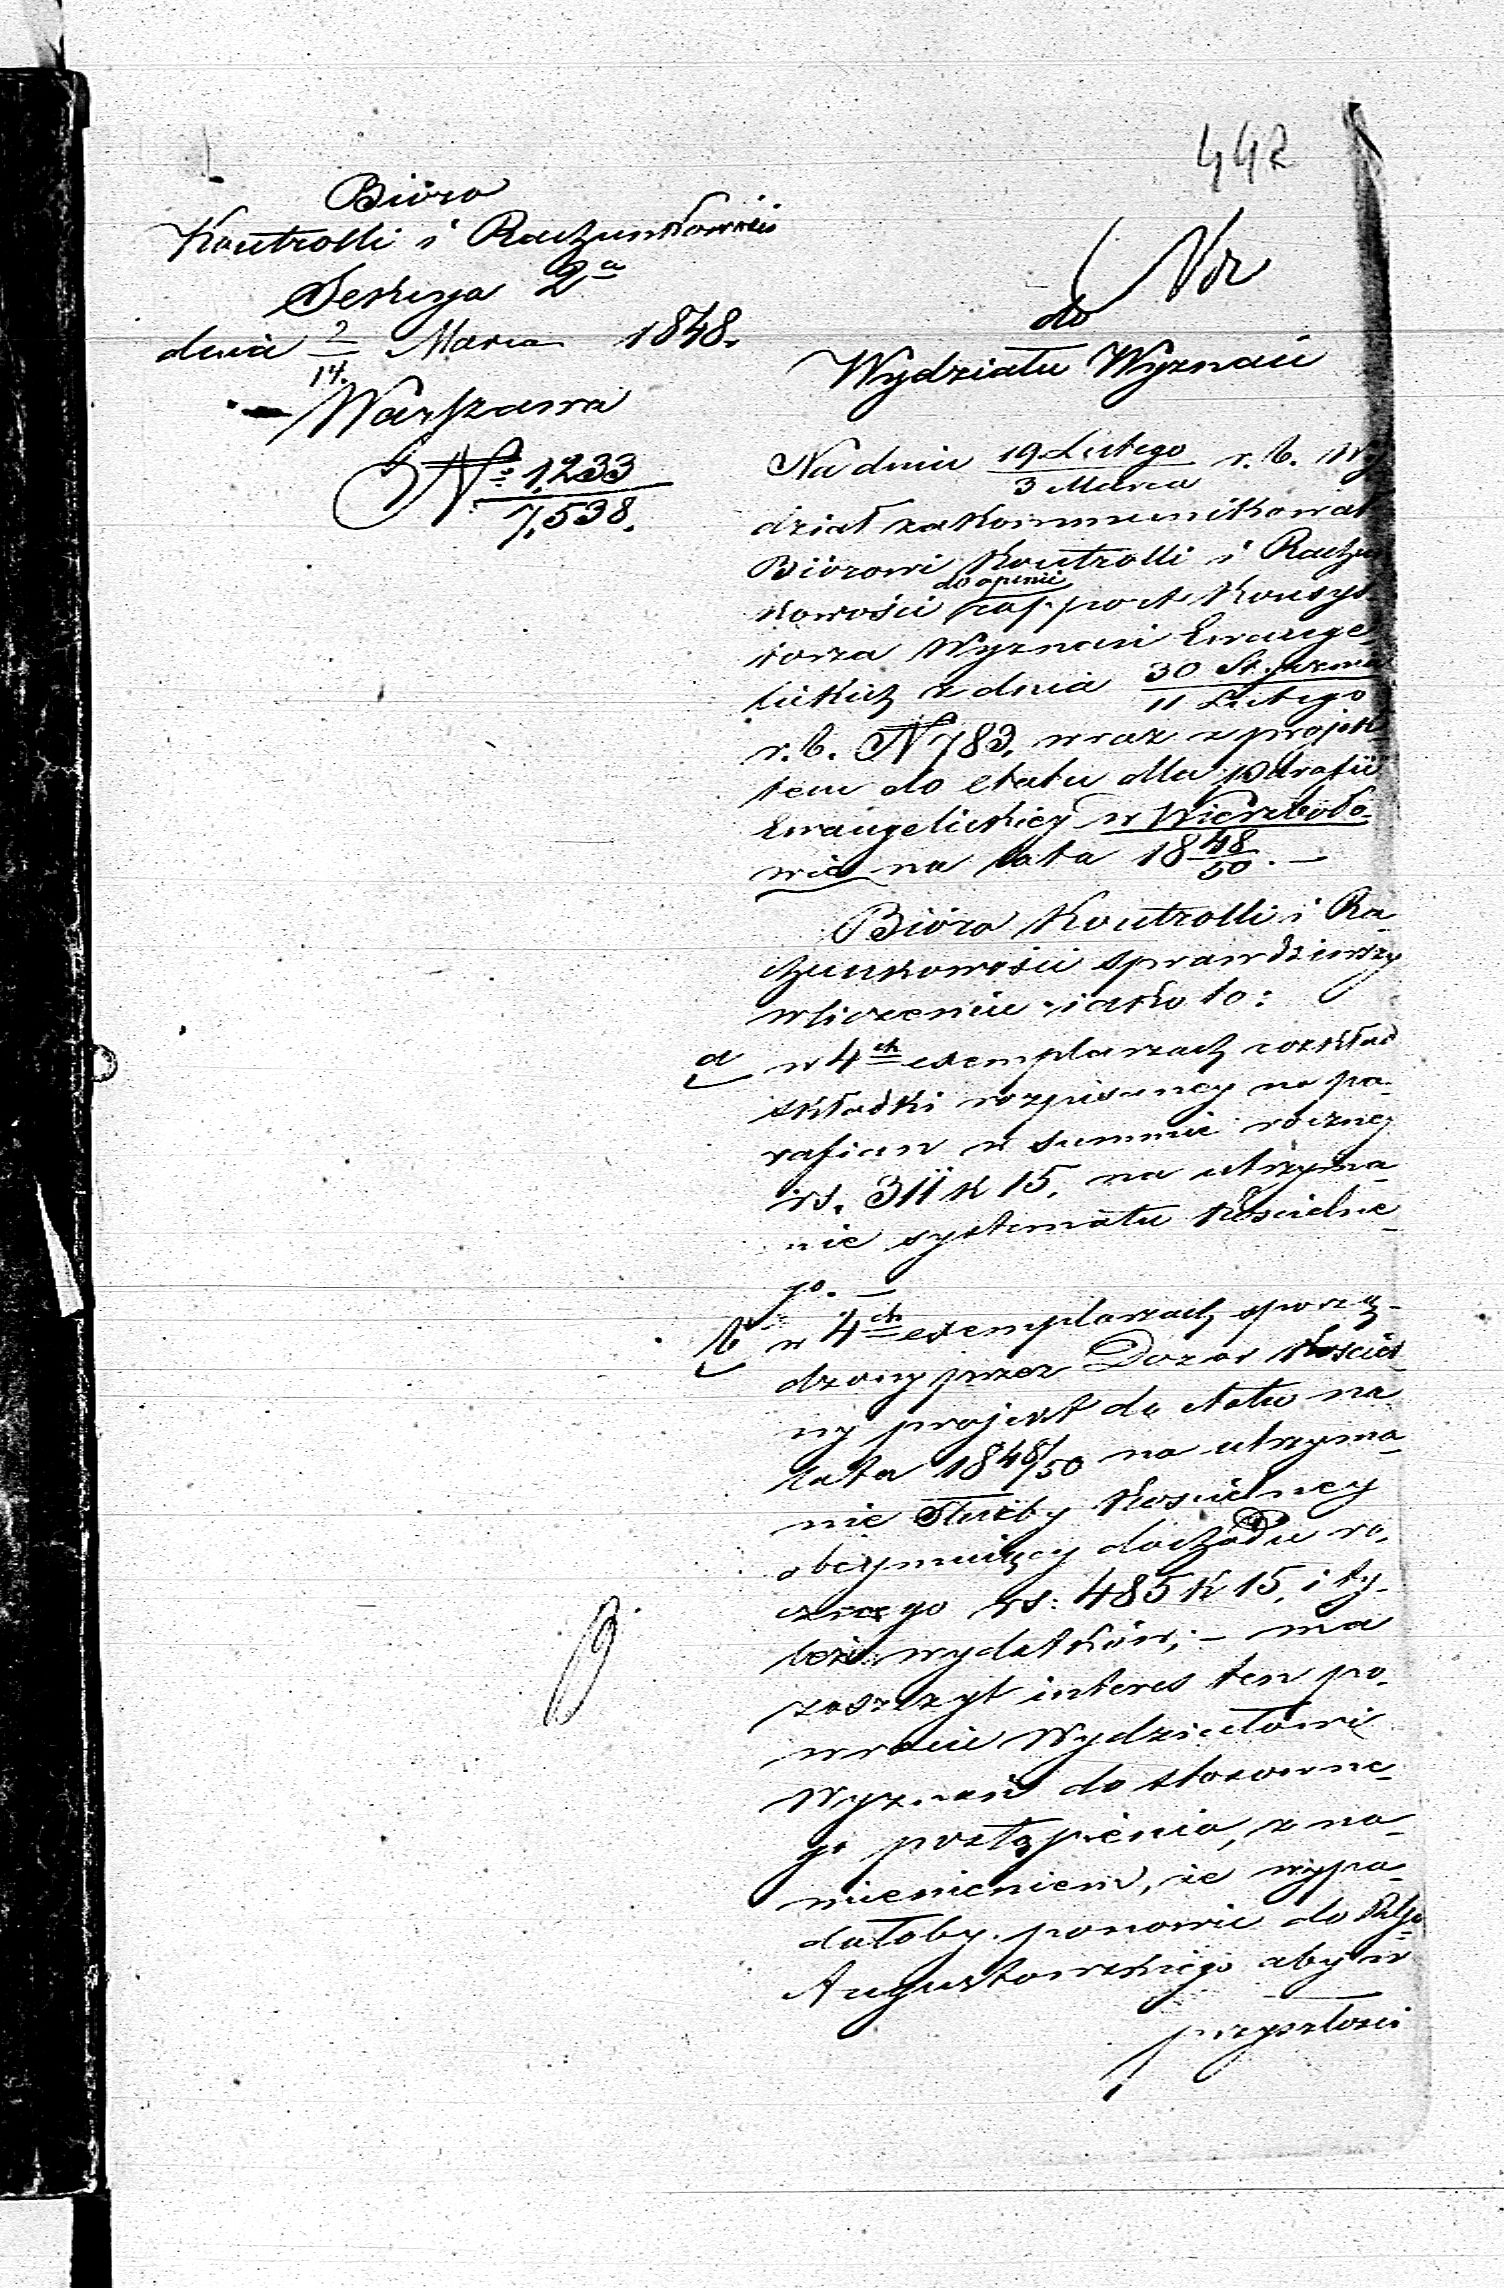 442
Bióro
Kontrolli i Rachunkowości
Sekcya 2a
dnia 2/14. Marca 1848.
Warszawa
No 1,233/7,538.
do
Wydziału Wyznań
Na dniu 19 Lutego/3 Marca r. b. Wy
dział zakommunikował
Biórowi Kontrolli i Rachun
do opinii
kowości rapport Konsys
torza Wyznań Ewange
lickich z dnia 30 Stycznia/11 Lutego
r. b. N 783, wraz z projek
tem do etatu dla parafii
Ewangelickiey w Wierzboło-
wie na lata 18 48/50. —
Bióro Kontrolli i Ra-
chunkowości sprawdziwszy
w liczeniu iako to:
a w 4ch exemplarzach rozkład
składki rozpisaney na pa-
rafian w summie roczney
rs. 311 k 15. na utrzyma-
nie systematu Kościelne-
go. —
b w 4ch exemplarzach sporzą-
dzony przez Dozór Kościel-
ny projekt do etatu na
lata 1848/50 na utrzyma-
nie Służby Kościelney
obeymuiący dochodu ro-
cznego rs: 485 k 15. i ty-
leż wydatków; — ma
zaszczyt interes ten po-
wrócić Wydziałowi
Wyznań do stosowne-
go postąpienia, z na-
mienieniem, że wypa-
dałoby ponowić do Rządu
Augustowskiego aby w
przyszłości